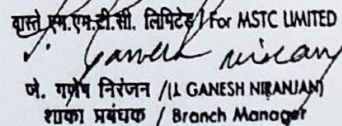 वास्ते एम.एम.टी.सी. लिमिटेड / For MSTC LIMITED
जे. गणेश निरंजन / (J. GANESH NIRANJAN)
शाका प्रबंधक / Branch Manager